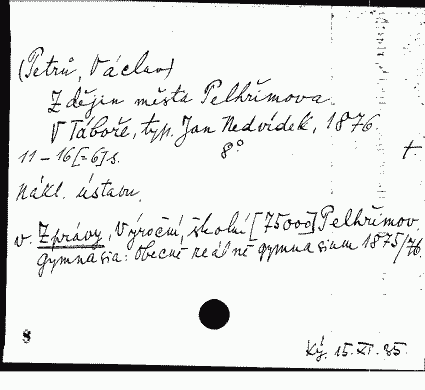 (Petrů, Václav)
Z dějin města Pelhřimova.
V Táboře, typ. Jan Nedvídek, 1876.
11 - 16 [=6] s. 8° t.
Nákl. ústavu.
v. Zprávy, Výroční, školní [75000] Pelhřimov.
gymnasia: Obecné reálné gymnasium 1875/76.
8
Ký. 15.XI.85.